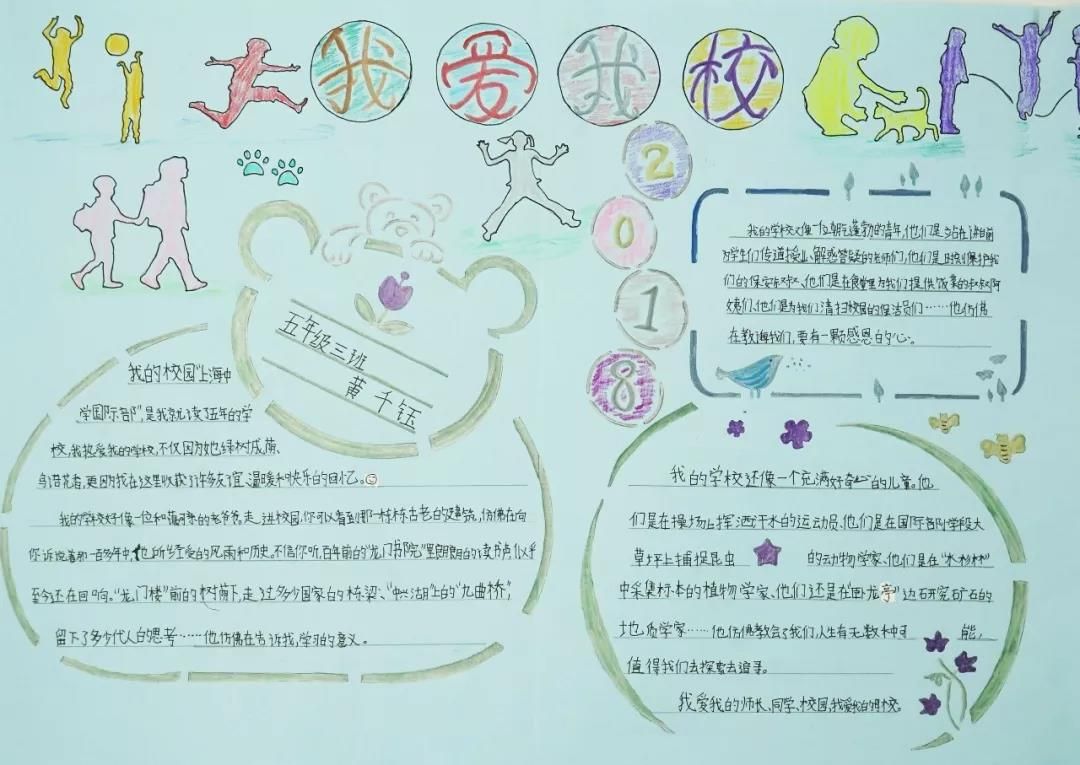 我爱我校
2018
五年级三班
黄千钰
我的校园"上海中
学国际部",是我就读了五年的学
校,我热爱我的学校,不仅因为她绿树成荫、
鸟语花香,更因为我在这里收获了许多友谊、温暖和快乐的回忆。
我的学校好像一位和蔼可亲的老爷爷。走进校园,你可以看到那一栋栋古老的建筑,仿佛在向
你诉说着那一百多年中,他所经受的风雨和历史。不信你听,百年前的"龙门书院"里朗朗的读书声似乎
至今还在回响。"龙门楼"前的树荫下,走过多少国家的栋梁、"中兴湖"上的"九曲桥",
留下了多少代人的思考……他仿佛在告诉我,学习的意义。
我的学校又像一位朝气蓬勃的青年,他们是站在讲台前
为学生们传道授业、解惑答疑的老师们,他们是时刻保护我
们的保安叔叔、他们是在食堂里为我们提供饭菜的叔叔阿
姨们、他们是为我们清扫校园的保洁员们……他仿佛
在教诲我们,要有一颗感恩的心。
我的学校还像一个充满好奇心的儿童。他
们是在操场上挥洒汗水的运动员、他们是在国际部小学段大
草坪上捕捉昆虫的动物学家、他们是在"水杉林"
中采集标本的植物学家、他们还是在"卧龙亭"边研究矿石的
地质学家……他仿佛教会了我们,人生有无数种可能,
值得我们去探索去追寻。
我爱我的师长、同学、校园,我爱我的母校。